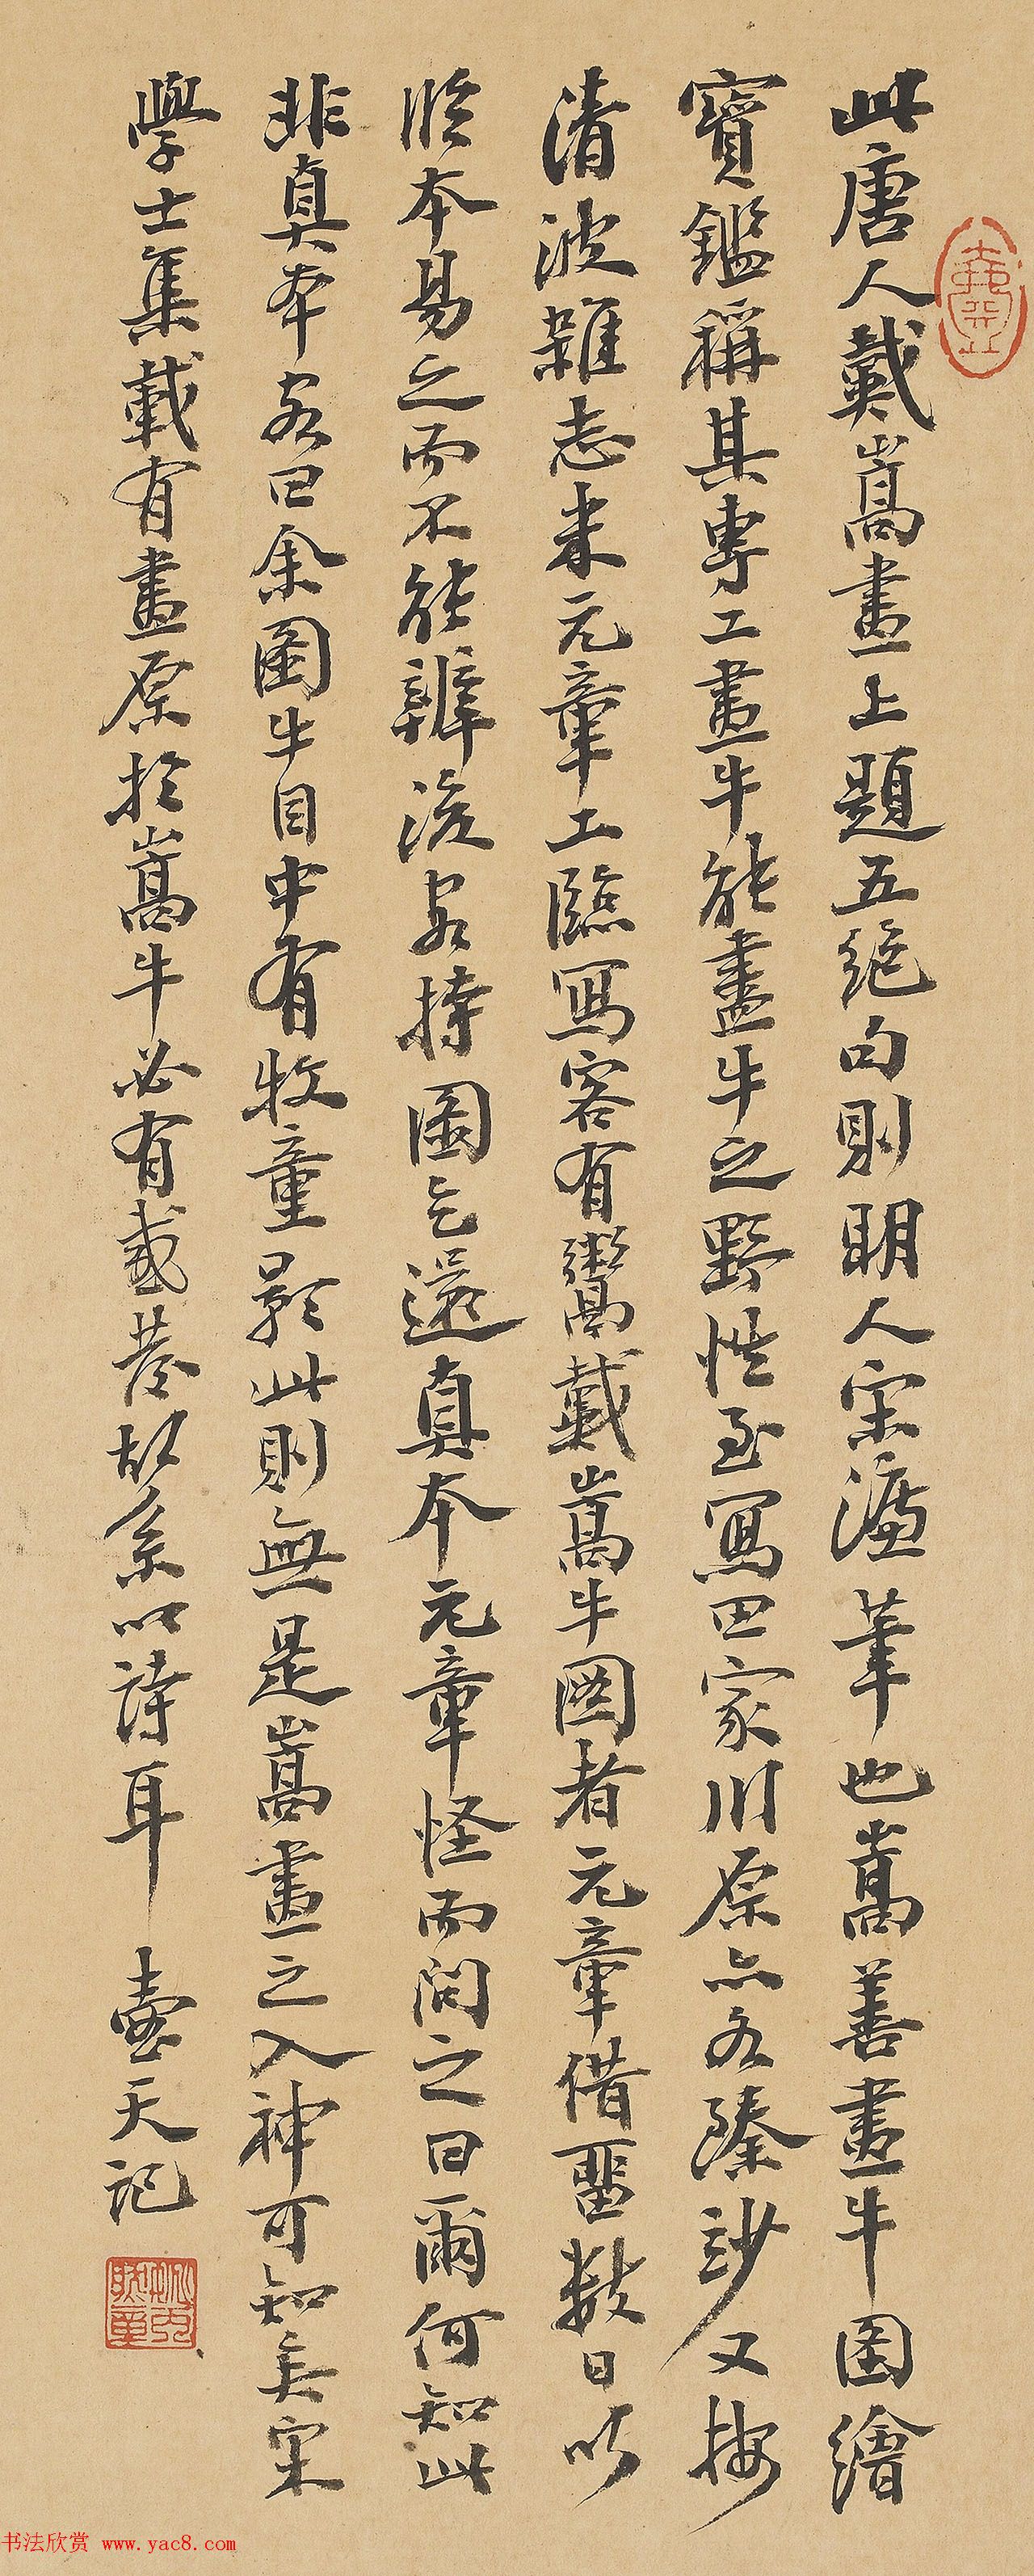 此唐人戴嵩畫上題五絕句則明人宋濂筆也嵩善畫牛圖繪
寶鑑稱其專工畫牛能盡牛之野性至寫田家川原亦各臻妙又按
清波雜志米元章工臨寫客有鬻戴嵩牛圖者元章借留數日以
臨本易之而不能辨後客持圖乞還真本元章怪而問之曰爾何知此
非真本客曰余圖牛目中有牧童影此則無是嵩畫之入神可知矣宋
學士集載有畫原於嵩牛必有感發故系以詩耳 壺天記
书法欣赏 www.yac8.com